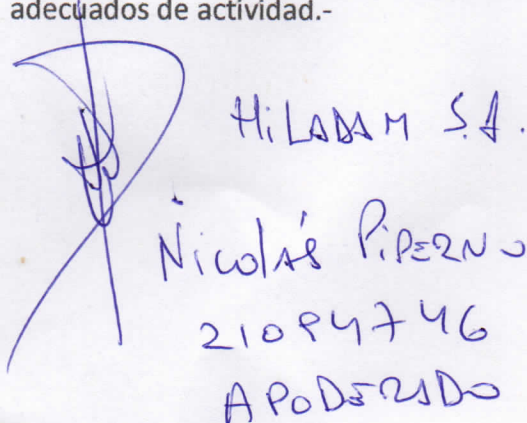 adecuados de actividad.-
HiLADAM S.A.
Nicolás PiPERNO
21094746
APODERADO